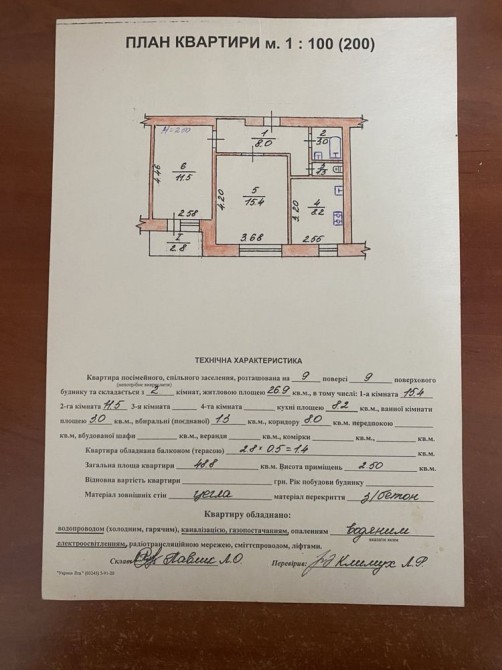 ПЛАН КВАРТИРИ м. 1 : 100 (200)
H=2.50
1
8.0
2
3.0
3
1.3
6
11.5
4.46
5
15.4
4.20
4
8.2
3.20
2.58
3.68
2.56
I
2.8
ТЕХНІЧНА ХАРАКТЕРИСТИКА
Квартира посімейного, спільного заселення, розташована на 9 поверсі 9 поверхового
(непотрібне викреслити)
будинку та складається з 2 кімнат, житловою площею 26.9 кв.м., в тому числі: 1-а кімната 15.4
2-га кімната 11.5 3-я кімната 4-та кімната кухні площею 8.2 кв.м., ванної кімнати
площею 3.0 кв.м., вбиральні (поєднаної) 1.3 кв.м., коридору 8.0 кв.м. передпокою
кв.м, вбудованої шафи кв.м., веранди кв.м., комірки кв.м., кв.м.
Квартира обладнана балконом (терасою) 2.8 × 0.5 = 1.4 кв.м.
Загальна площа квартири 48.8 кв.м. Висота приміщень 2.50
Відновна вартість квартири грн. Рік побудови будинку
Матеріал зовнішніх стін цегла матеріал перекриття з/бетон
Квартиру обладнано:
водопроводом (холодним, гарячим), каналізацією, газопостачанням, опаленням водяним
електроосвітленням, радіотрансляційною мережею, сміттєпроводом, ліфтами.
Склав: Павлик Л.О. Перевірив: Климух Л.Р.